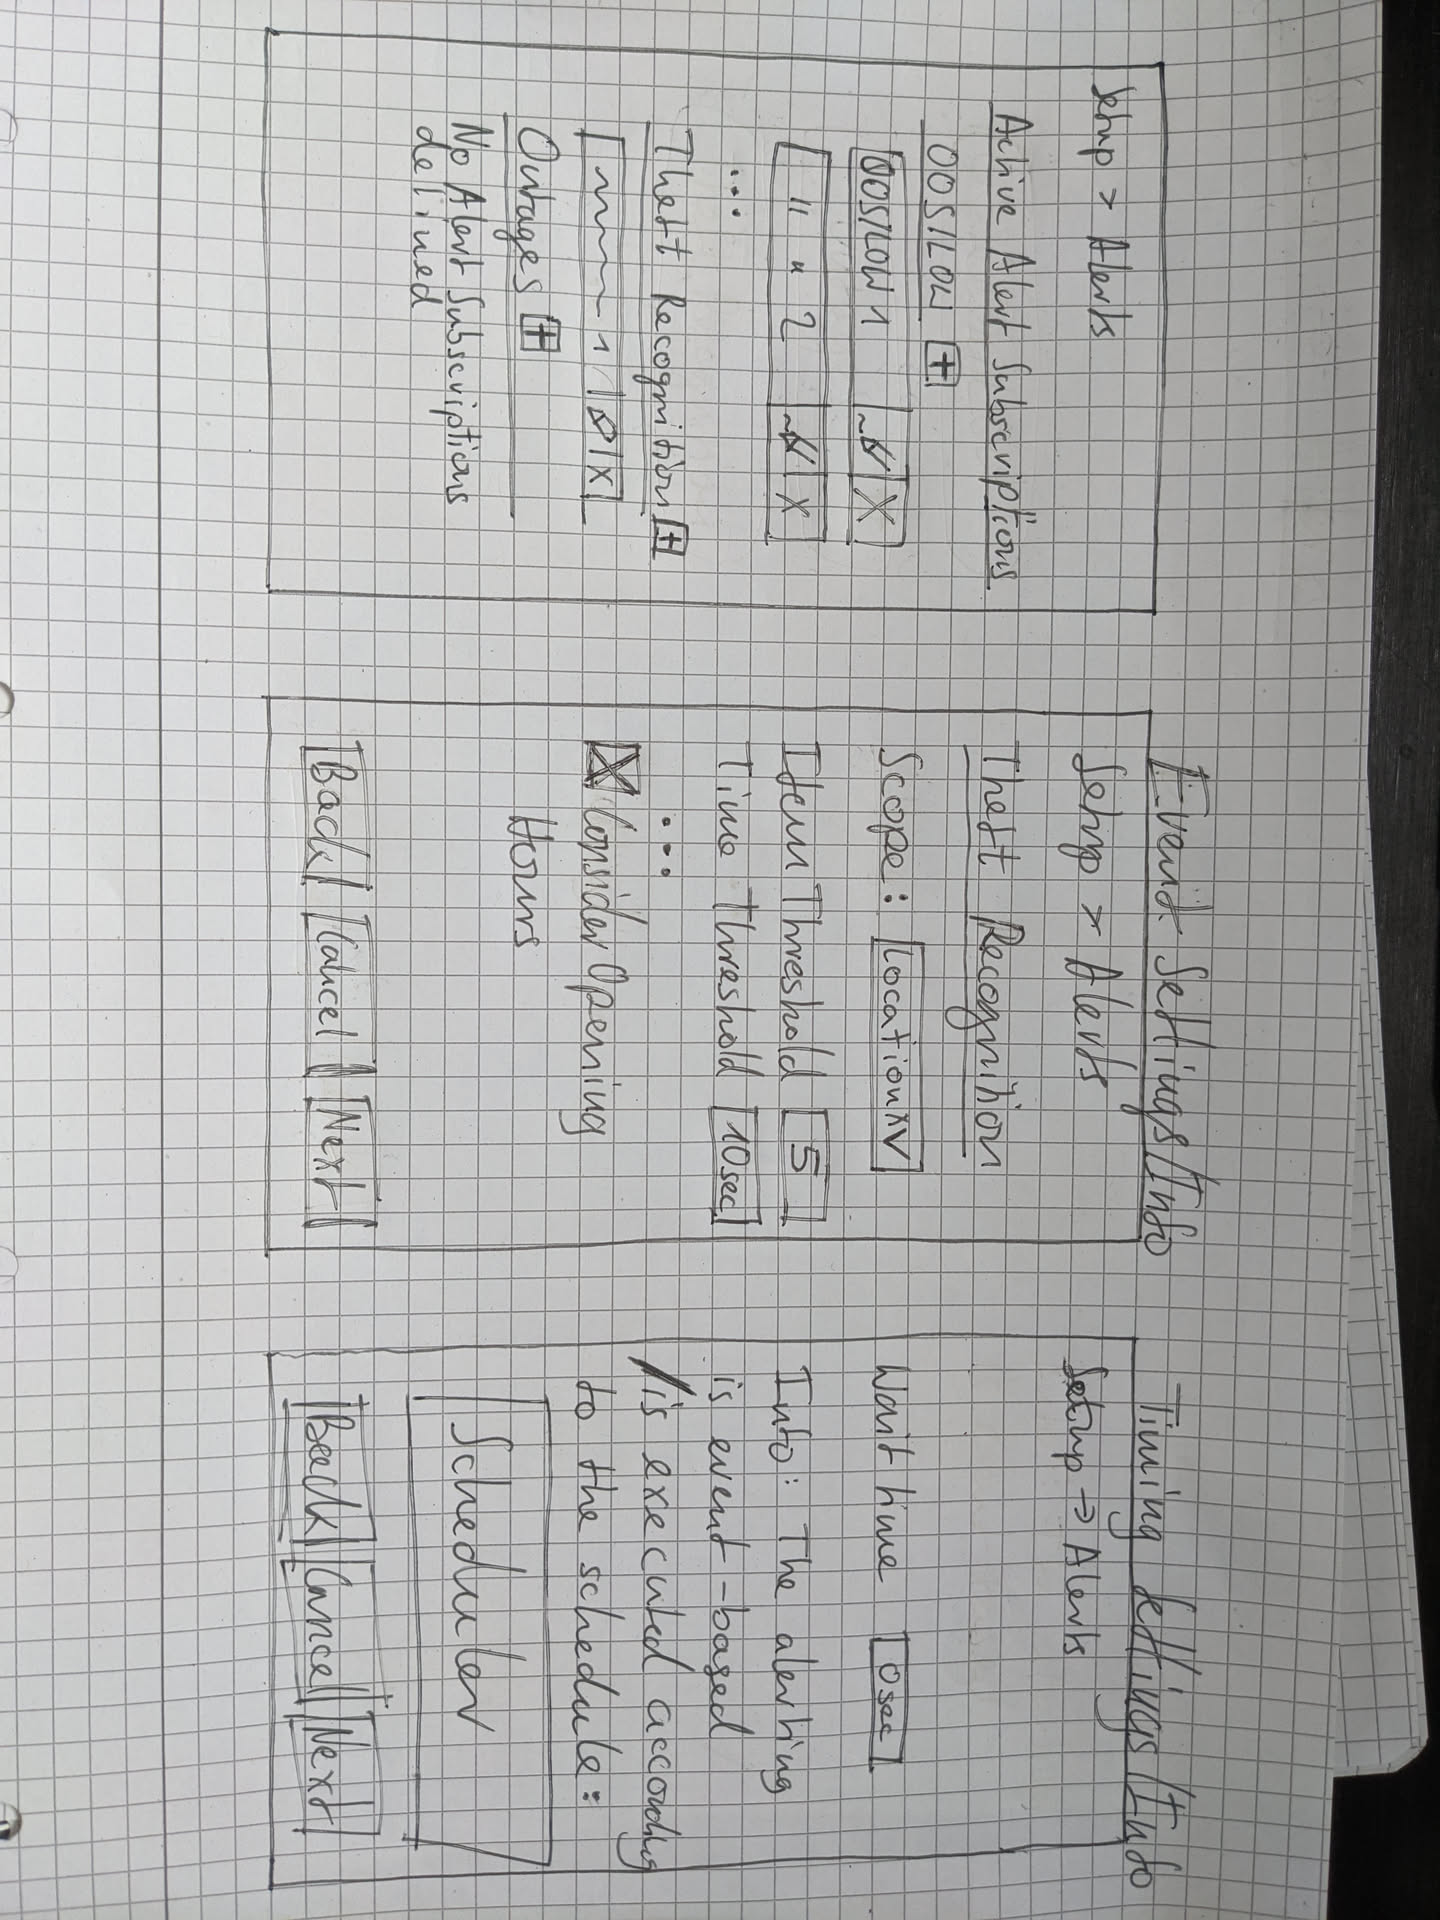 Setup > Alerts
Active Alert Subscriptions
OOS/Low +
OOS/LOW 1 X
" " 2 X
...
Theft Recognition +
1 X
Outages +
No Alert Subscriptions
defined
Event Settings/Info
Setup > Alerts
Theft Recognition
Scope: Location X V
Item Threshold 5
Time Threshold 10sec
...
X Consider Opening
Hours
Back Cancel Next
Timing Settings/Info
Setup → Alerts
Wait time 0sec
Info: The alerting
is event-based
/is executed according
to the schedule:
Scheduler
Back Cancel Next